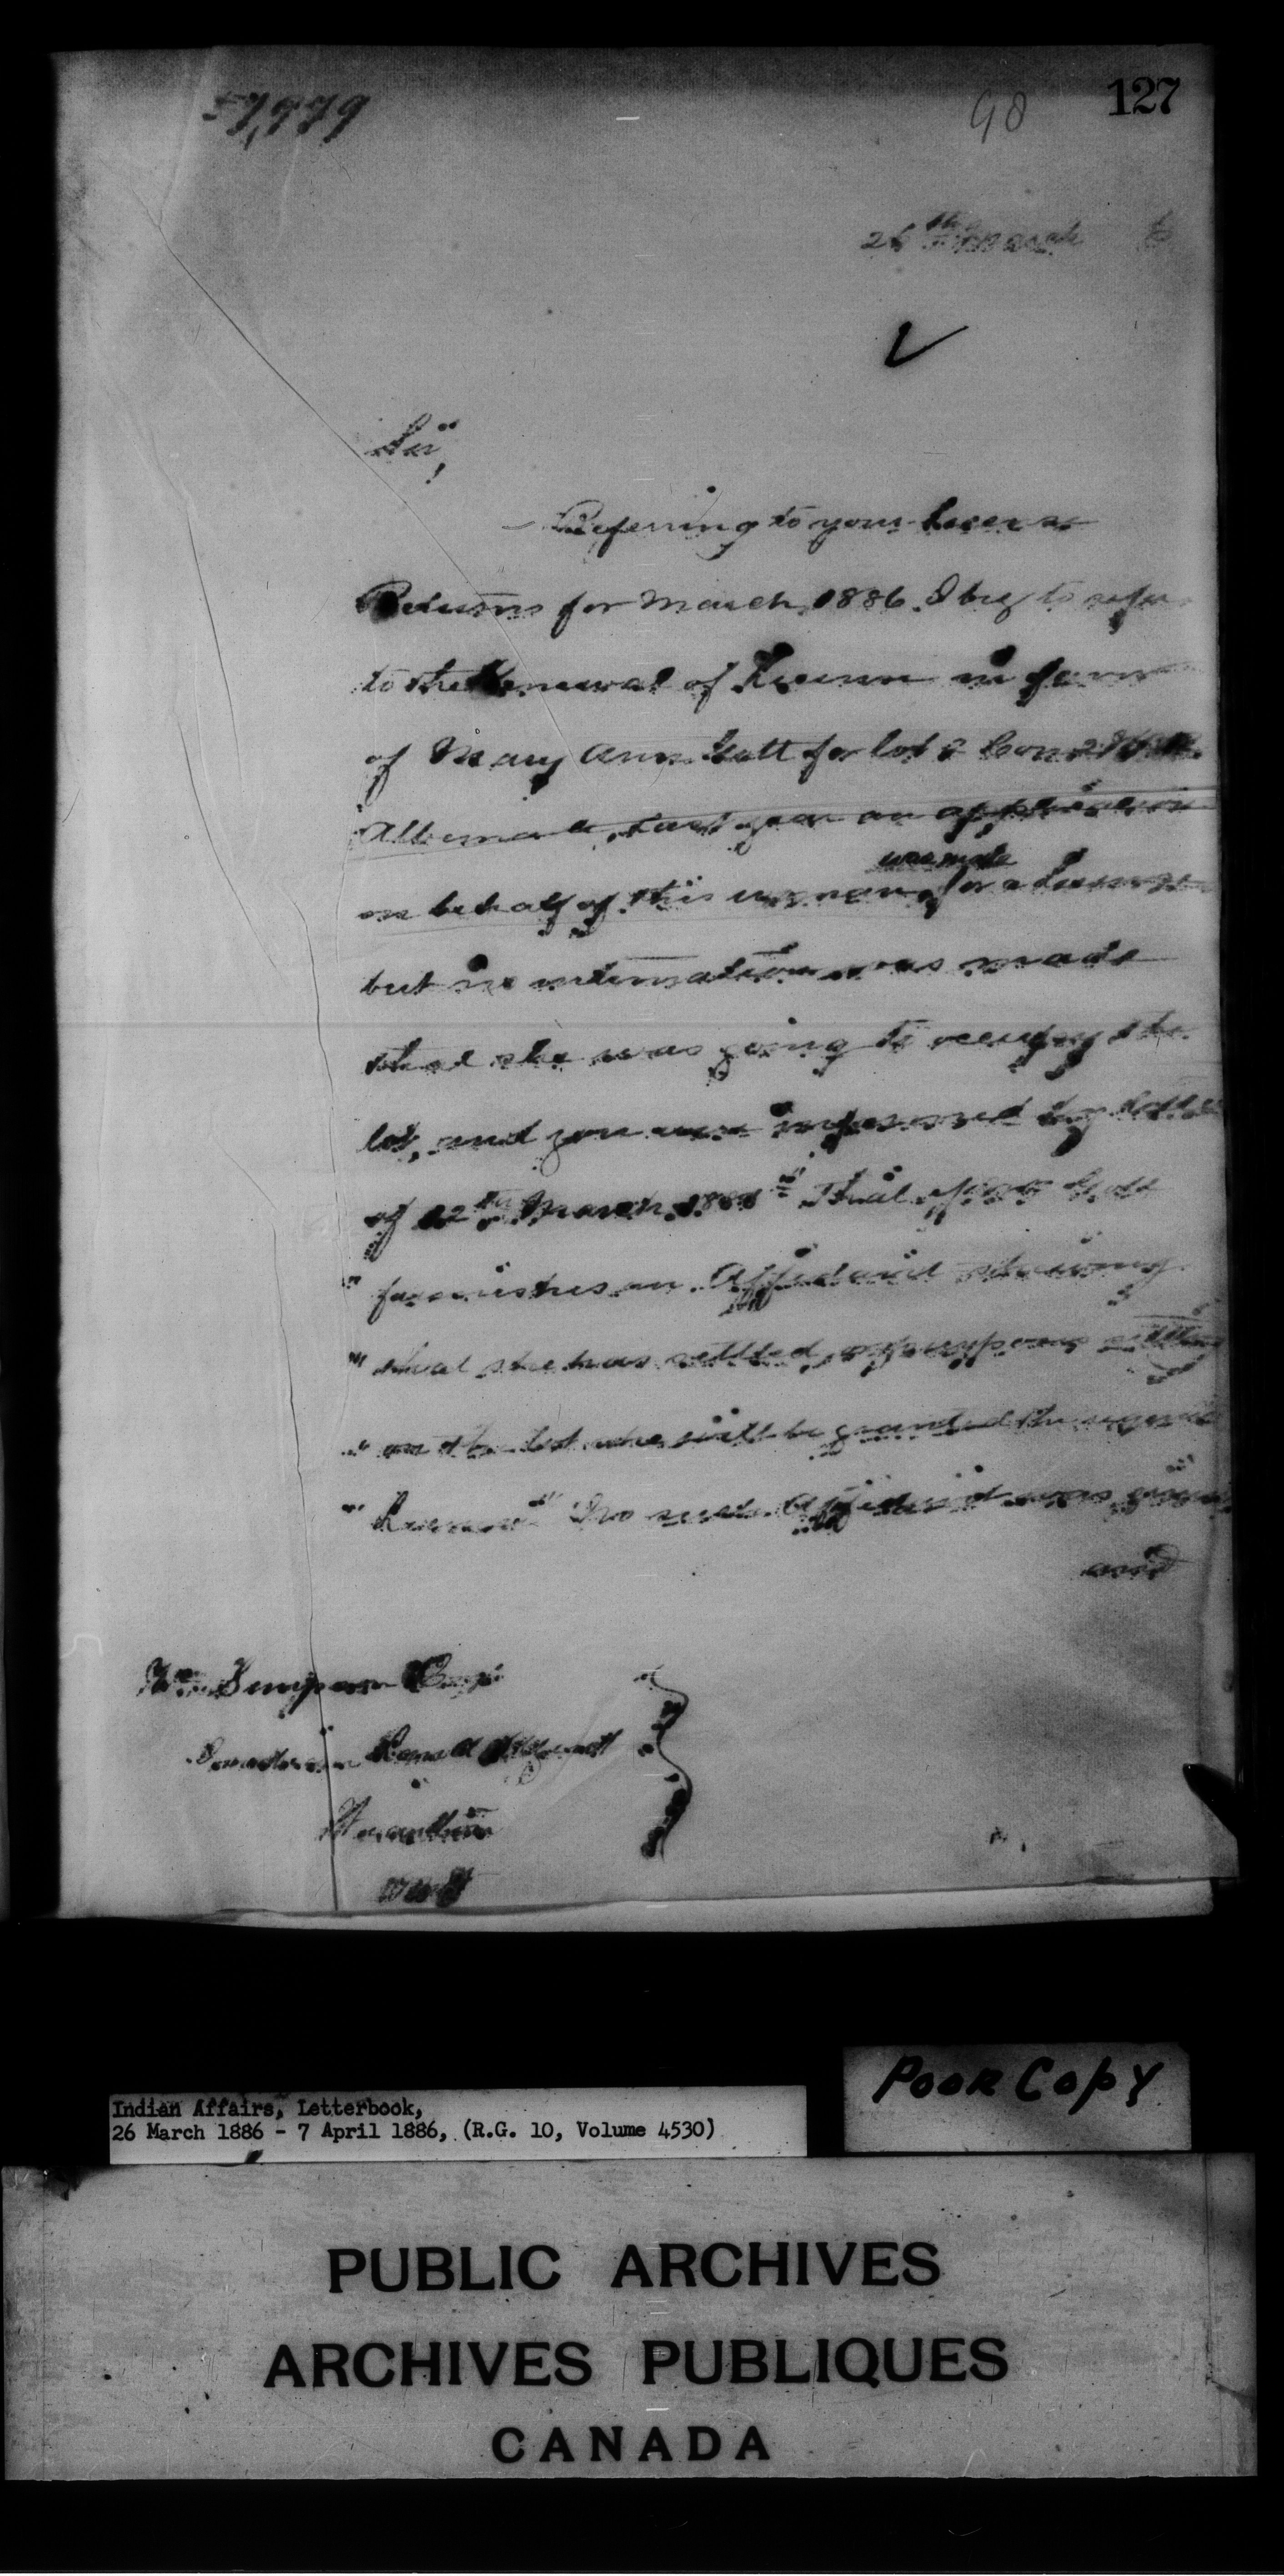 57,979
98 127
26th March 6
Sir,
Referring to your License
Returns for March, 1886. I beg to refer
to the Renewal of License in favor
of Mary Ann Gott for lot 2 Con 2
Albemarle, Last year an application
was made
on behalf of this woman for a License
but no intimation was made
that she was going to occupy the
lot, and you were informed by letter
of 12th March 188 "That if Gott
" furnishes an Affidavit showing
" that she has settled,
" on the lot she will be granted the
" License" No such Affidavit was given
and
Wm Simpson Esqr
Land Agent
Wiarton
Ont
Indian Affairs, Letterbook,
26 March 1886 - 7 April 1886, (R.G. 10, Volume 4530)
POOR COPY
PUBLIC ARCHIVES
ARCHIVES PUBLIQUES
CANADA